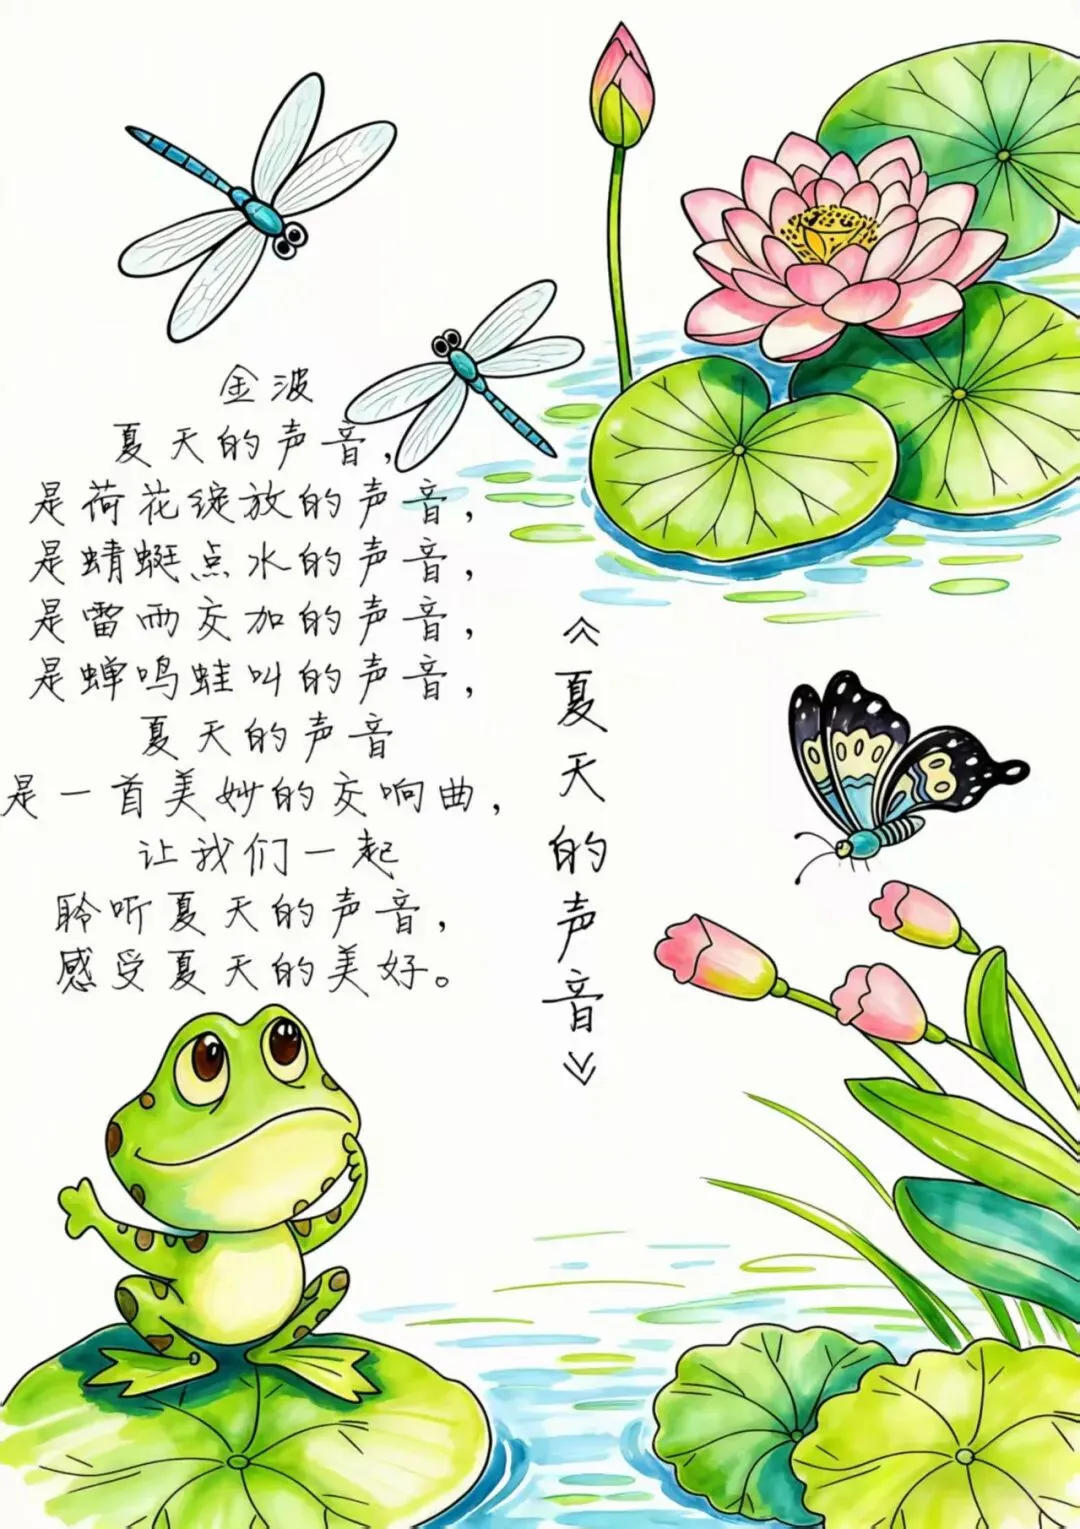 《夏天的声音》
金波
夏天的声音，
是荷花绽放的声音，
是蜻蜓点水的声音，
是雷雨交加的声音，
是蝉鸣蛙叫的声音，
夏天的声音
是一首美妙的交响曲，
让我们一起
聆听夏天的声音，
感受夏天的美好。